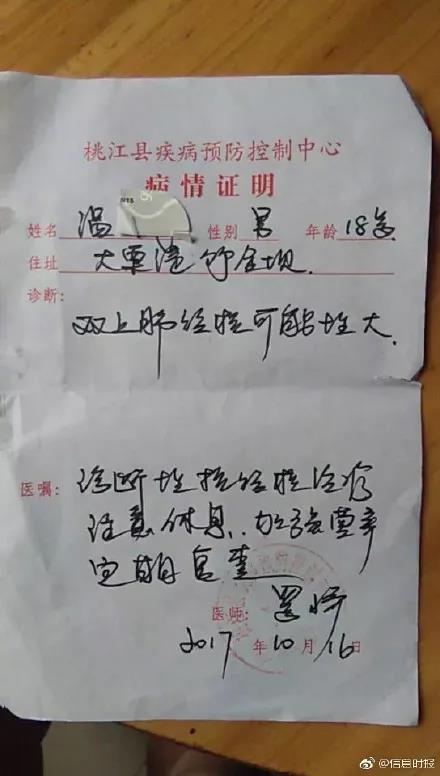 桃江县疾病预防控制中心
病情证明
姓名 温 性别 男 年龄 18岁
住址 大栗港
诊断:
双上肺结核可能性大.
医嘱: 诊断性抗结核治疗
注意休息, 加强营养
定期复查
医师:
2017年10月16日
@信息时报